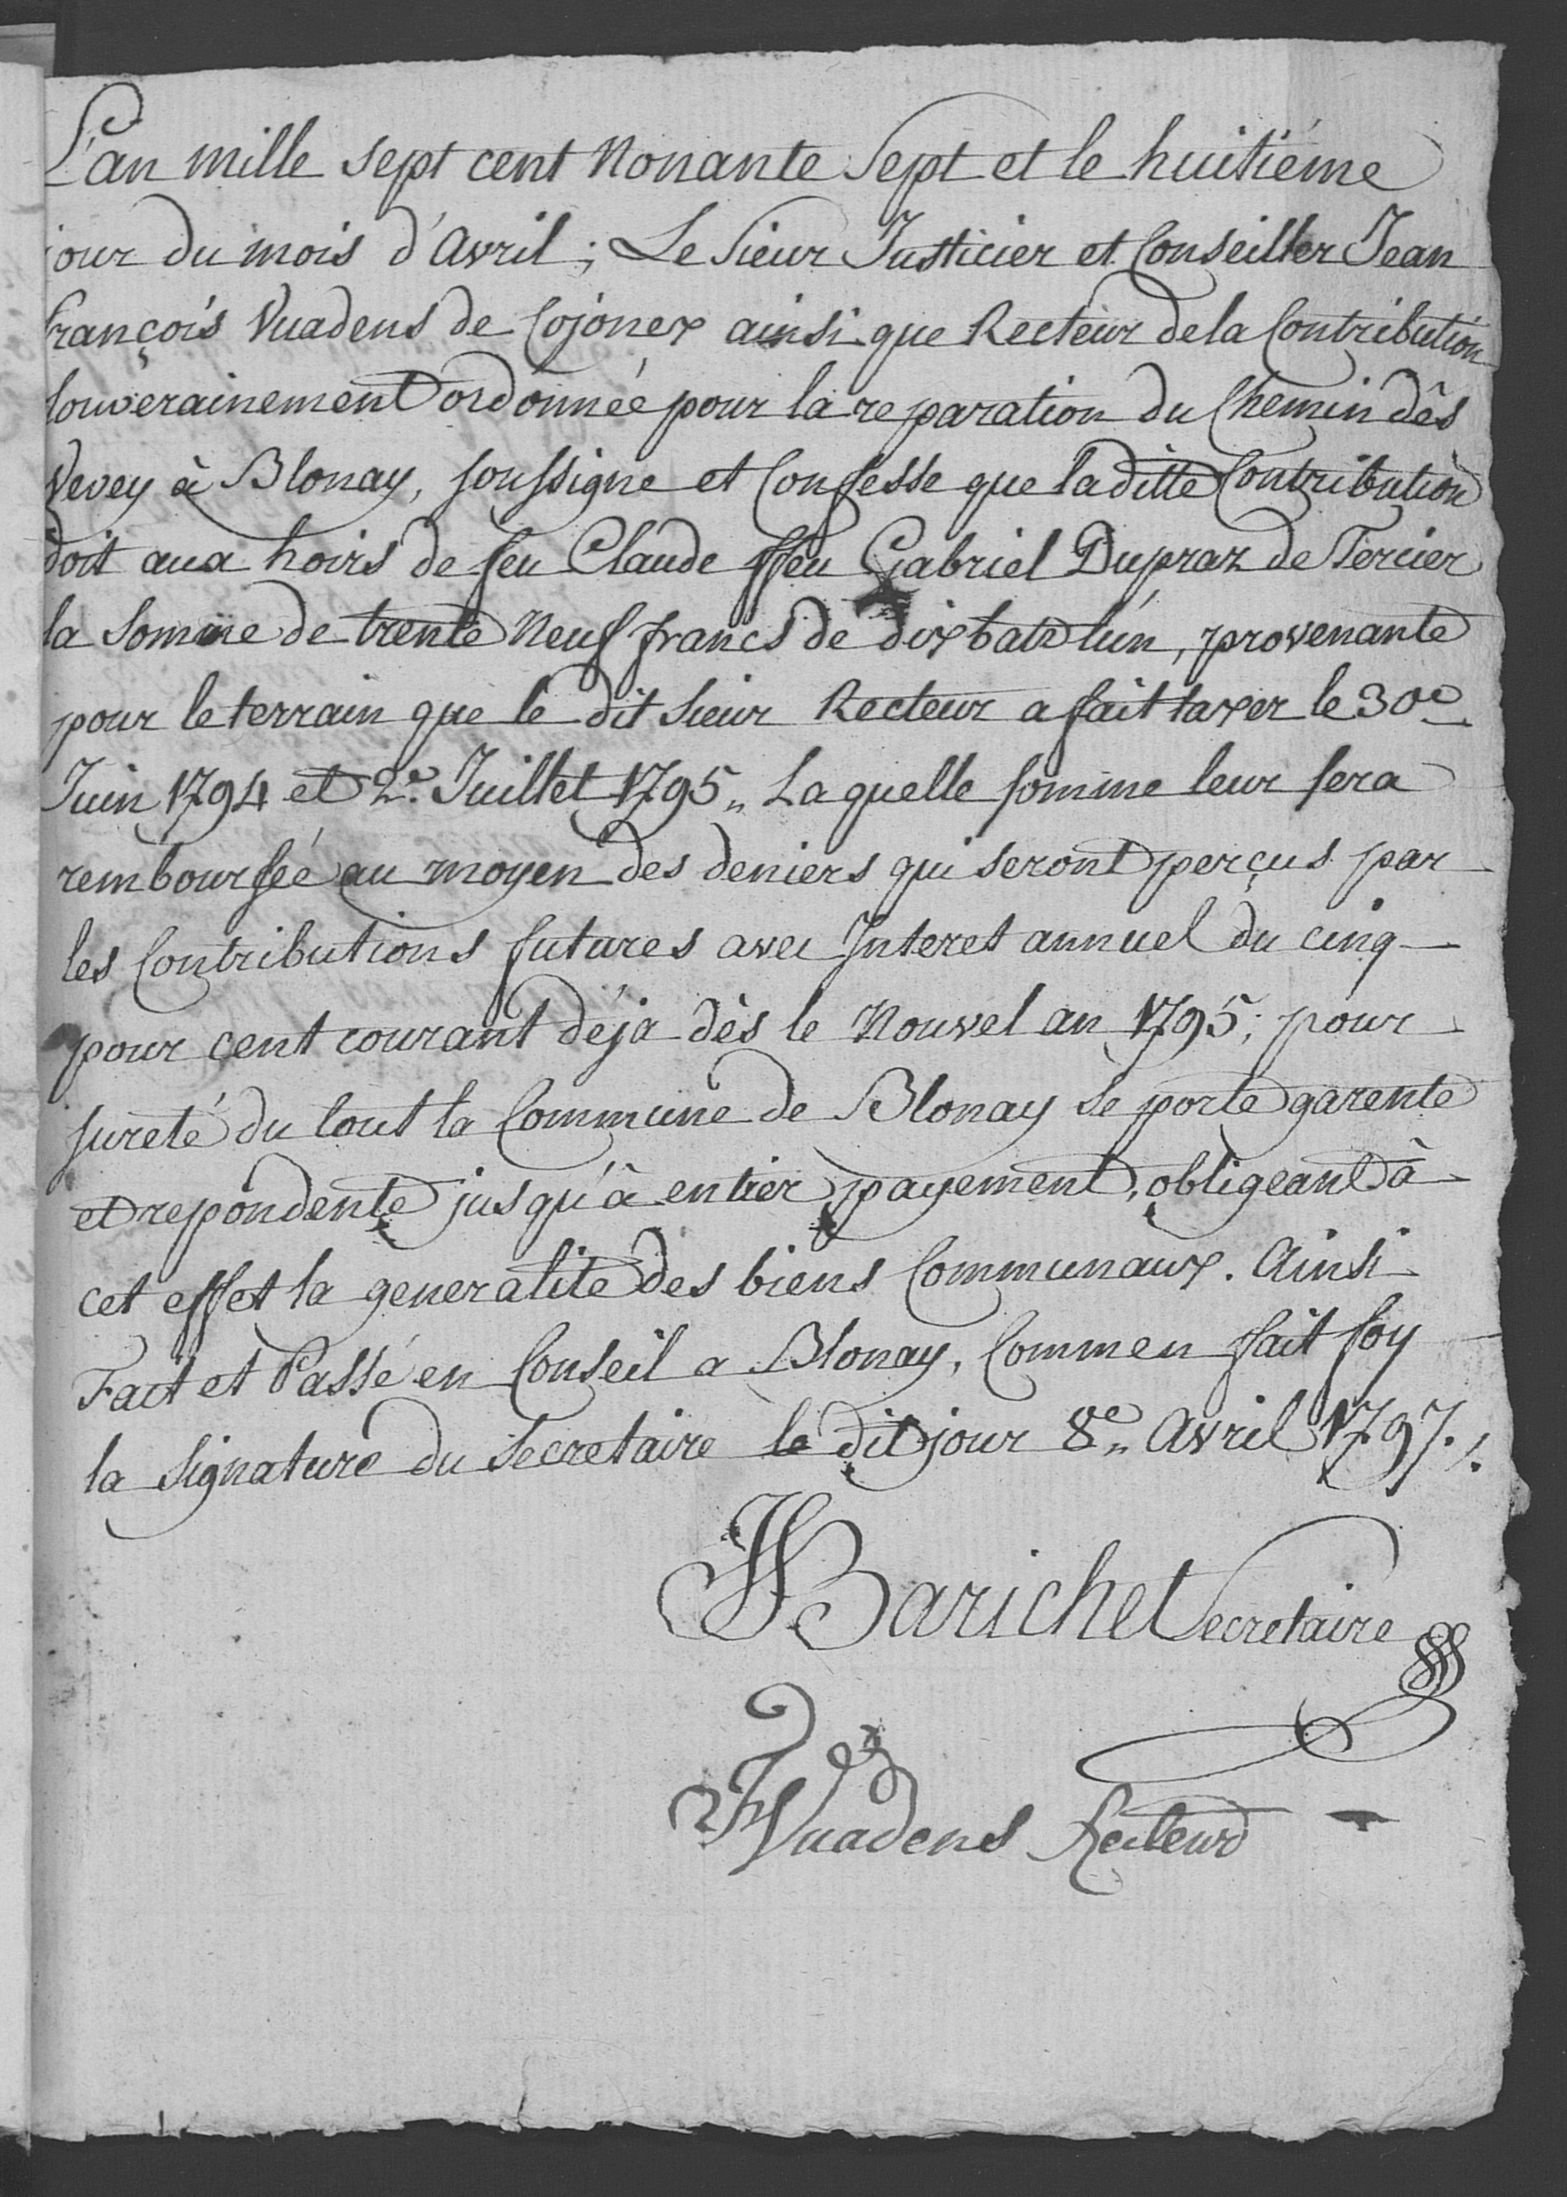 L'an mille sept cent Nonante Sept et le huitiéme
jour du mois d'Avril; Le Sieur Justicier et Conseiller Jean
françois Vuadens de Cojonex ainsi que Recteur de la Contribution
souverainement ordonnée pour la reparation du Chemin dês
Vevey à Blonay, soussigne et Confesse que la ditte Contribution
doit aux hoirs de feu Claude ffeu Gabriel Dupraz de Tercier
la Somme de trente Neuf francs de dix batz l'ún, provenante
pour le terrain que le dit Sieur Recteur a fait taxer le 30e
Juin 1794 et 2e. Juillet 1795„ Laquelle somme leur sera
remboursée au moyen des deniers qui seront perçus par
les Contributions futures avec Interet annuel du cinq
pour cent courant déja dès le Nouvel an 1795; pour
sureté du tout la Commune de Blonay se porte garente
et repondente jusqu'à entier payement, obligeant à
cet effet la generalité des biens Communaux. Ainsi
Fait et Passé en Conseil a Blonay, Comme en fait foy
la Signature du Secretaire le dit jour 8e„ Avril 1797./.
Barichet Secretaire
Vuadens Recteur